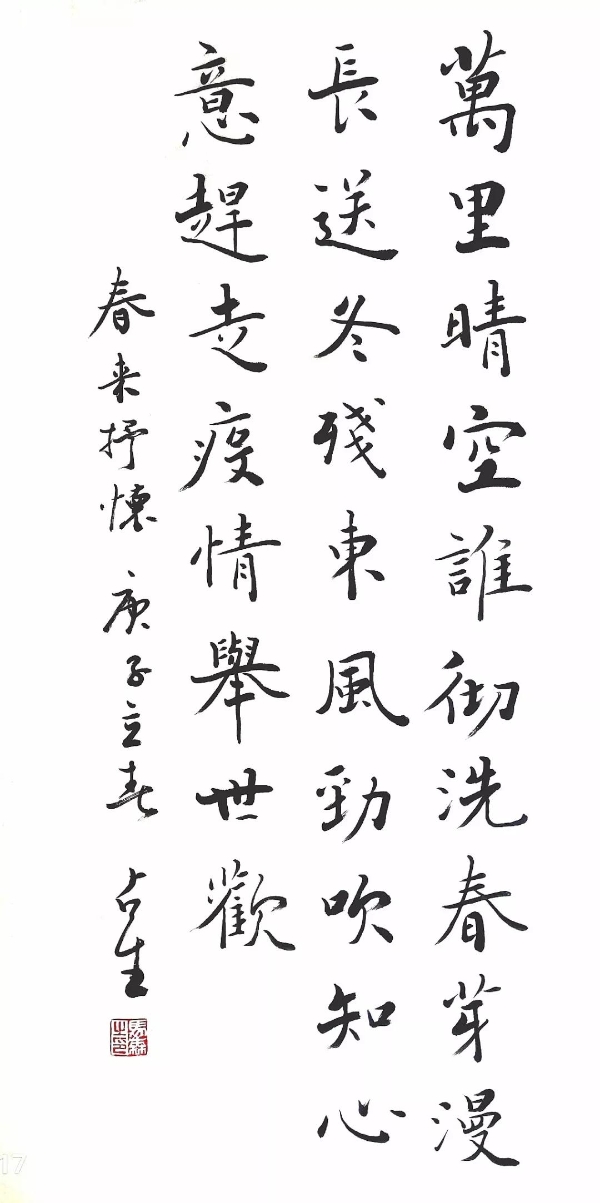 萬里晴空誰彻洗春芽漫
長送冬殘東風勁吹知心
意趕走疫情舉世歡
春来抒懷 庚子立春 占生
17